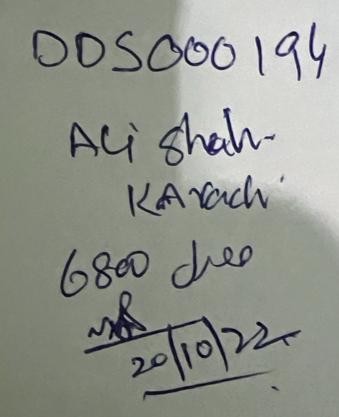 DDS000194
Ali Shah-
KARachi
6800
20/10/22